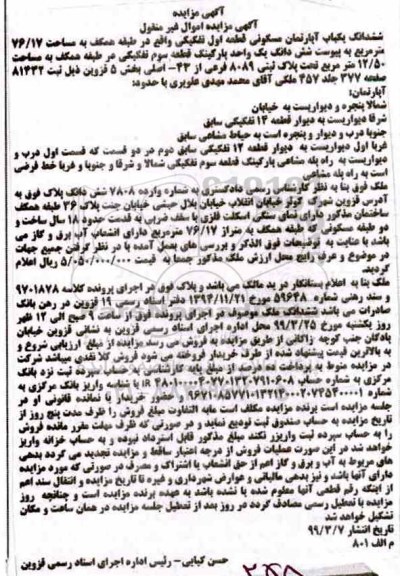 آگهی مزایده
آگهی مزایده اموال غیر منقول
ششدانگ یکباب آپارتمان مسکونی قطعه اول تفکیکی واقع در طبقه همکف به مساحت ۷۶/۱۷
مترمربع به پیوست شش دانگ یک واحد پارکینگ قطعه سوم تفکیکی در طبقه همکف به مساحت
۱۲/۵۰ متر مربع تحت پلاک ثبتی ۸۰۸۹ فرعی از ۴۳- اصلی بخش ۵ قزوین ذیل ثبت ۸۱۴۳۲
صفحه ۳۷۷ جلد ۴۵۷ ملکی آقای محمد مهدی علویری با حدود:
آپارتمان:
شمالا پنجره و دیواریست به خیابان
شرقا دیواریست به دیوار قطعه ۱۴ تفکیکی سابق
جنوبا درب و دیوار و پنجره است به حیاط مشاعی سابق
غربا اول دیواریست به دیوار قطعه ۱۲ تفکیکی سابق دوم در دو قسمت که قسمت اول درب و
دیواریست به راه پله مشاعی پارکینگ قطعه سوم تفکیکی شمالا و شرقا و جنوبا و غربا خط فرضی
است به راه پله مشاعی
ملک فوق بنا به نظر کارشناس رسمی دادگستری به شماره وارده ۷۸۰۸ شش دانگ پلاک فوق به
آدرس قزوین شهرک کوثر خیابان انقلاب خیابان بلال حبشی خیابان جنت پلاک ۳۶ طبقه همکف
ساختمان مذکور دارای نمای سنگی اسکلت فلزی با سقف ضربی به قدمت حدود ۱۸ سال ساخت و
دو طبقه مسکونی که طبقه همکف به متراژ ۷۶/۱۷ مترمربع دارای انشعاب آب برق و گاز می
باشد با عنایت به توضیحات فوق الذکر و بررسی های بعمل آمده با در نظر گرفتن جمیع جهات
در موضوع و عرف رایج محل ارزش ملک مذکور جمعا به قیمت ۵/۰۵۰/۰۰۰/۰۰۰ ریال اعلام
گردید.
ملک بنا به اعلام بستانکار در ید مالک می باشد و پلاک فوق در اجرای پرونده کلاسه ۹۷۰۱۸۷۸
و سند رهنی شماره ۵۹۶۴۸ مورخ ۱۳۹۴/۱۱/۲۱ دفتر اسناد رسمی ۱۹ قزوین در رهن بانک
صادرات می باشد ششدانگ ملک موصوف در اجرای پرونده فوق از ساعت ۹ صبح الی ۱۲ ظهر
روز یکشنبه مورخ ۹۹/۳/۲۵ محل اداره اجرای اسناد رسمی قزوین به نشانی قزوین خیابان
پادگان جنب کوچه زاکانی از طریق مزایده به فروش می رسد مزایده از مبلغ ارزیابی شروع و
به بالاترین قیمت پیشنهاد شده از طرف خریدار فروخته می شود فروش کلا نقدی میباشد شرکت
در مزایده منوط به پرداخت ده درصد از مبلغ پایه کارشناسی به حساب سپرده ثبت نزد بانک
مرکزی به شماره حساب
جلسه مزایده است برنده مزایده مکلف است مابه التفاوت مبلغ فروش را ظرف مدت پنج روز از
تاریخ مزایده به حساب صندوق ثبت تودیع نماید و در صورتی که ظرف مهلت مقرر مانده فروش
را به حساب سپرده ثبت واریز نکند مبلغ مذکور قابل استرداد نبوده و به حساب خزانه واریز
خواهد شد در این صورت عملیات فروش از درجه اعتبار ساقط و مزایده تجدید می گردد بدهی
های مربوط به آب و برق و گاز اعم از حق انشعاب یا اشتراک و مصرف در صورتی که مورد مزایده
دارای آنها باشد و نیز بدهی مالیاتی و عوارض شهرداری و غیره تا تاریخ مزایده و انتقال سند اعم
از اینکه رقم قطعی آنها معلوم شده یا نشده باشد به عهده برنده مزایده است و چنانچه روز
مزایده با تعطیل رسمی مصادف گردد در روز بعد از تعطیل جلسه مزایده در همان ساعت و مکان
تشکیل خواهد شد
تاریخ انتشار ۹۹/۳/۷
م الف ۸۰۱
حسن کیایی- رئیس اداره اجرای اسناد رسمی قزوین